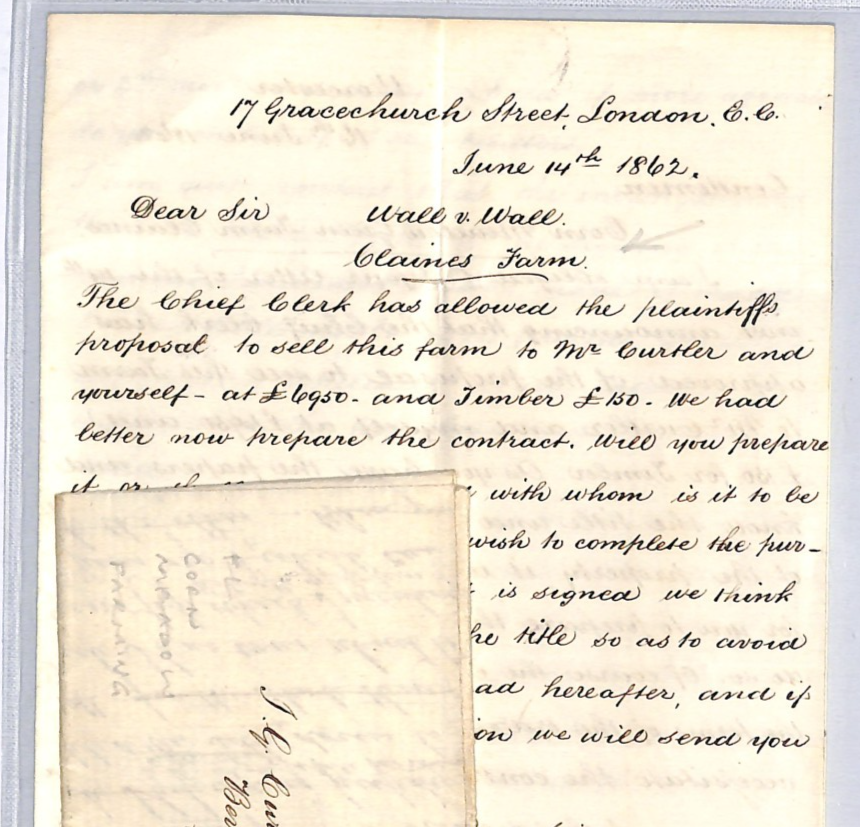 17 Gracechurch Street, London, E.C.
June 14th 1862.
Dear Sir
Wall v. Wall.
Claines Farm.
The Chief Clerk has allowed the plaintiffs
proposal to sell this farm to Mr Curtler and
yourself - at £6950 - and Timber £150 - We had
better now prepare the contract. Will you prepare
it or
with whom is it to be
wish to complete the pur-
is signed we think
the title so as to avoid
ad hereafter, and if
on we will send you
T. G. Cur
Ber